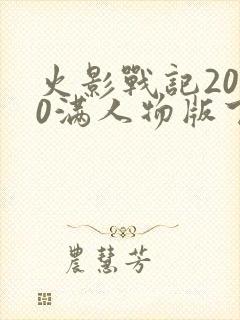 火影戰記20
0满人物版下
農慧芳